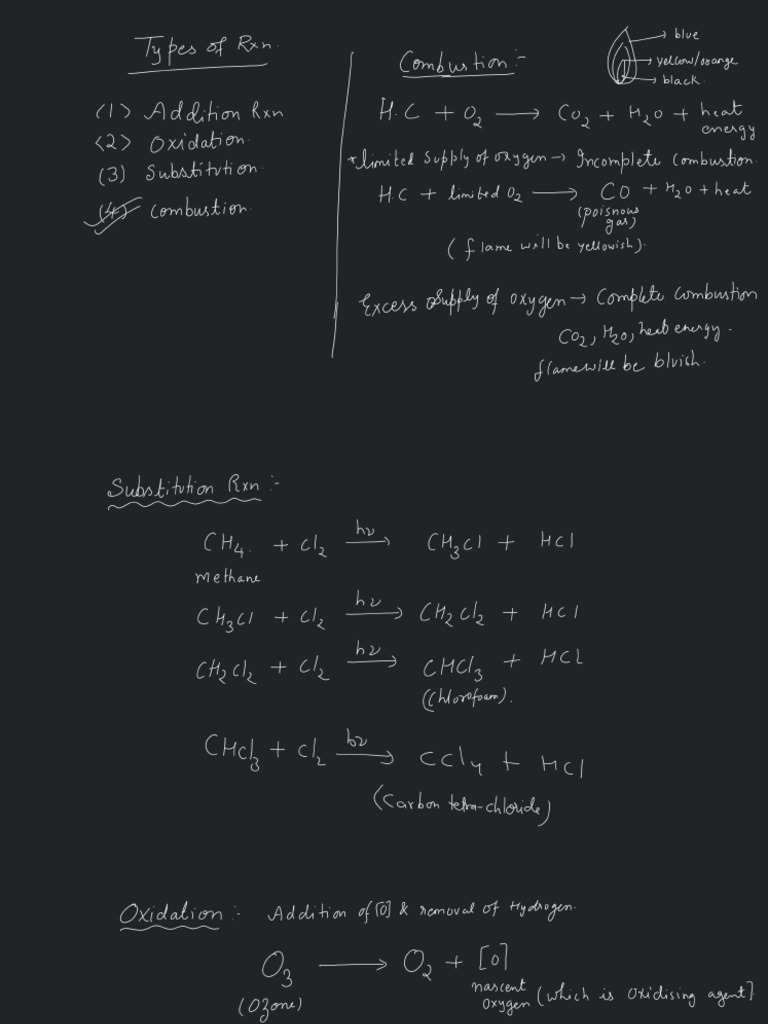 Types of Rxn.
(1) Addition Rxn
(2) Oxidation.
(3) Substitution.
(4) Combustion.
Combustion :-
blue
yellow/orange
black.
H.C + O2 → CO2 + H2O + heat energy
*limited supply of oxygen → Incomplete combustion.
H.C + limited O2 → CO + H2O + heat
(poisnous gas)
(flame will be yellowish).
Excess supply of oxygen → Complete combustion
CO2, H2O, heat energy.
flame will be bluish.
Substitution Rxn :-
CH4. + Cl2 hν→ CH3Cl + HCl
methane
CH3Cl + Cl2 hν→ CH2Cl2 + HCl
CH2Cl2 + Cl2 hν→ CHCl3 + HCl
(Chlorofoam).
CHCl3 + Cl2 hν→ CCl4 + HCl
(Carbon tetra-chloride)
Oxidation :- Addition of [O] & removal of Hydrogen.
O3 → O2 + [O]
(Ozone)
nascent oxygen (which is Oxidising agent)